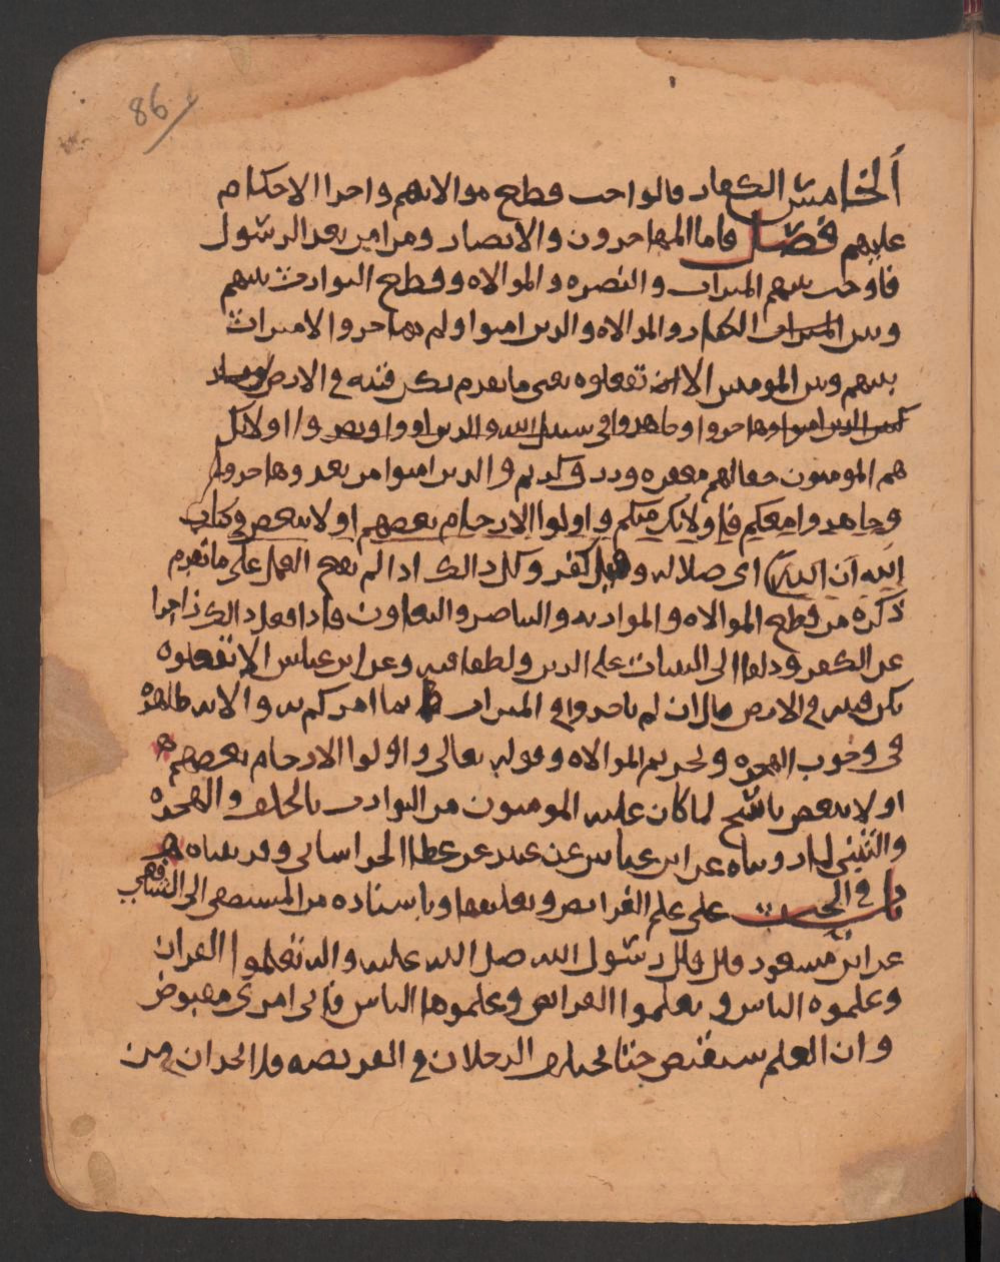 86
الخامس الكفار فالواجب قطع موالاتهم واجرا الاحكام
عليهم فصل فاما المهاجرون والانصار ومن امن بعد الرسول
فاوجب بينهم الميراث والنصره والموالاه وقطع التوارث بينهم
وبين الكفار والموالاه والدين امنوا ولم يهاجروا لا ميراث
بينهم وبين المومنين الا تفعلوه يعني ما تقدم تكن فتنه في الارض وفساد
كبير الدين امنوا وهاجروا وجاهدوا في سبيل الله والدين اووا ونصروا اولائك
هم المومنون حقا لهم مغفره ورزق كريم والدين امنوا من بعد وهاجروا
وجاهدوا معكم فاولائك منكم واولوا الارحام بعضهم اولا ببعض في كتاب
الله ان الله اي ضلاله وقيل كفر وكل دالك ادا لم يقع العمل على ما تقدم
ذكره من قطع الموالاه والموارثه والتناصر والتعاون فادا فعل دالك زاجرا
عن الكفر ودلوا الى الثبات على الدين ولطفا فيه وعن ابن عباس الا تفعلوه
تكن فتنه في الارض قال ان لم ياخدوا في الميراث بما امركم به والايه ظاهره
في وجوب الهجره وتحريم الموالاه وقوله تعالى واولوا الارحام بعضهم
اولا ببعض ناسخ لما كان عليه المومنون من التوارث بالحلف والهجره
والتبني لما رويناه عن ابن عباس عن عبد عن عطا الخراساني وقد بيناه
باب في الحث على علم الفرايض وتعليمها وباسناده من المستصفى الى الشافعي
عن ابن مسعود قال قال رسول الله صل الله عليه واله تعلموا القران
وعلموه الناس وتعلموا الفرايض وعلموها الناس فاني امرئ مقبوض
وان العلم سيقبض حتا يختلف الرجلان في الفريضه فلا يجدان من